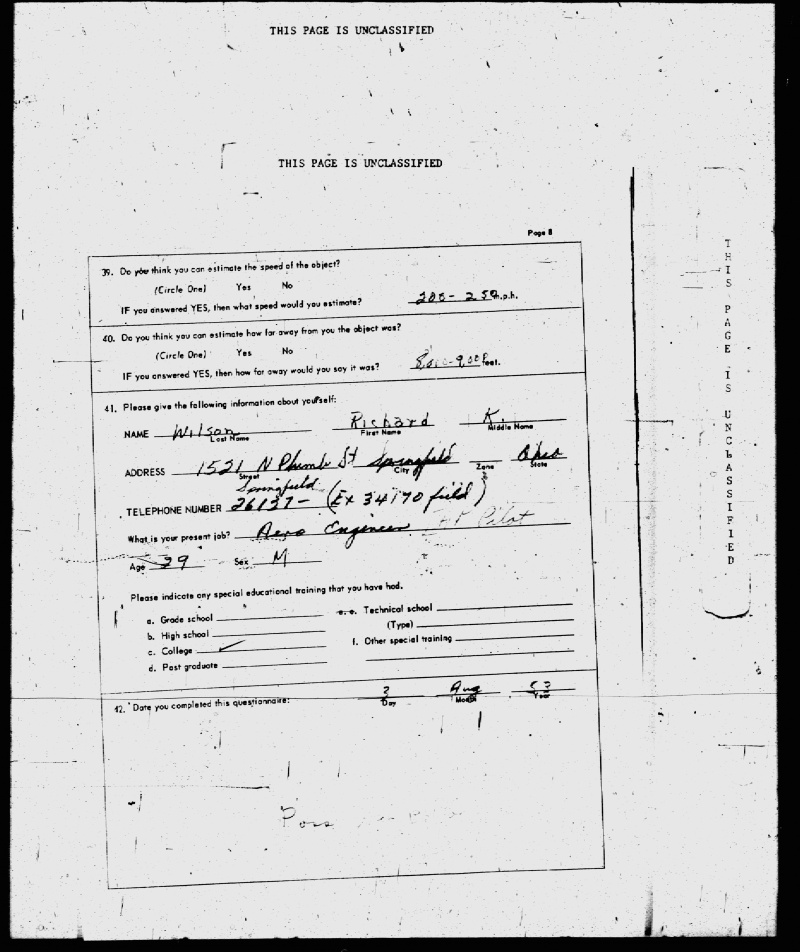 THIS PAGE IS UNCLASSIFIED
THIS PAGE IS UNCLASSIFIED
Page 8
39. Do you think you can estimate the speed of the object?
(Circle One) Yes No
IF you answered YES, then what speed would you estimate? 200 - 250 m.p.h.
40. Do you think you can estimate how far away from you the object was?
(Circle One) Yes No
IF you answered YES, then how far away would you say it was? 8,000-9,000 feet.
41. Please give the following information about yourself:
NAME Wilson Richard K.
Last Name First Name Middle Name
ADDRESS 1521 N Plumb St Springfield Ohio
Street City Zone State
Springfield
TELEPHONE NUMBER 26137 - (Ex 34170 field)
What is your present job? Aero Engineer AF Pilot
Age 29 Sex M
Please indicate any special educational training that you have had.
a. Grade school e. Technical school
(Type)
b. High school
c. College ✓ f. Other special training
d. Post graduate
42. Date you completed this questionnaire: 3 Aug 53
Day Month Year
Poss
THIS PAGE IS UNCLASSIFIED